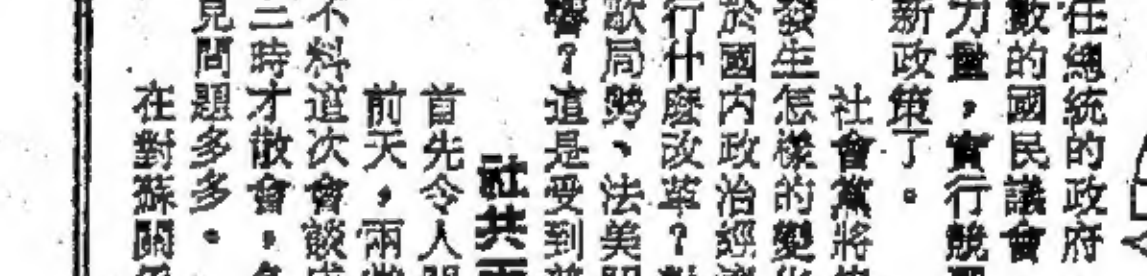 任總統的政府
數的國民議會
力量，實行競
新政策了。
社會黨將
發生怎樣的變
於國内政治經濟
行什麽改革？對
歐局勢、法美關
響？這是受到普
社共兩
首先令人關
前天，兩黨
不料這次會餤
三時才散會，
見問題多多。
在對蘇關係